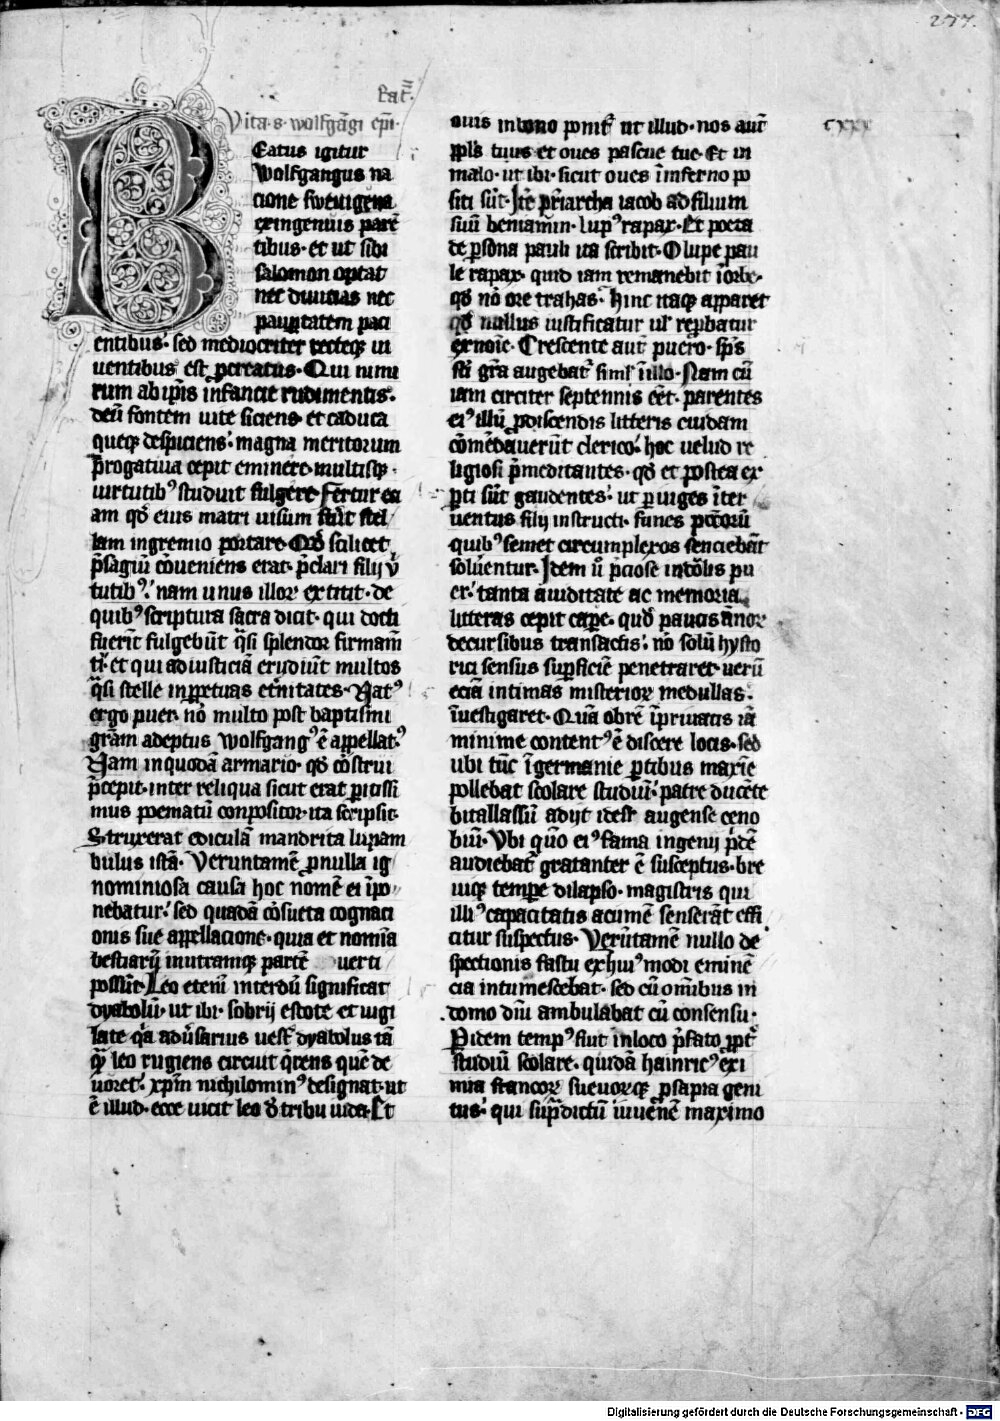 277.
Vita·s·wolfgãgi epĩ·
cxxx
Beatus igitur
Wolfgangus na
cione swevigena
ex ingenuis parẽ
tibus· et ut sibi
salomon optat
nec divicias nec
paup̱tatem paci
entibus· sed mediocriter recteqȝ vi
uentibus est p̱creatus· Qui nimi
rum ab ip̃is infancie rudimentis·
deũ fontem vite siciens· et caduca
queqȝ despiciens· magna meritorum
p̃rogatiua cepit eminere· multisqȝ·
uirtutibꝰ studuit fulgere· Fertur ea
am qđ eius matri uisum fuẽt stel
lam in gremio portare· Qđ scilicet
p̃sagiũ cõueniens erat· p̃clari filij v̾
tutibꝰ· nam unus illoꝝ extitit· de
quibꝰ scriptura sacra dicit· qui docti
fuerĩt fulgebũt q̃si splendor firmam̃
ti· et qui ad iusticiã erudiũt multos
q̃si stelle in p̱petuas et̾nitates· Natꝰ
ergo puer· nõ multo post baptismi
grãm adeptus wolfgangꝰ ẽ appellatꝰ
Nam in quodã armario· qđ cõstrui
p̃cepit· inter reliqua sicut erat p̱itissi
mus poematũ conpositor· ita scripsit·
Struxerat ediculã mandrita lupam
bulus istã· Veruntamẽ p̱ nulla ig
nominiosa causa hoc nomẽ ei ĩpo
nebatur· sed quadã cõsueta cognaci
onis sue appellacione· quia et nomĩa
bestiarũ in utramqȝ partẽ uerti
possũt· Leo etenĩ interdũ significat
dyabolũ· ut ibi· sobrij estote et uigi
late q̃a adũsarius uest̾ dyabolus tã
q̃ leo rugiens circuit q̃rens quẽ de
uoret· xp̃m nichilominꝰ designat· ut
ẽ illud· ecce vicit leo d̾ tribu iuda· Et
ouis in bono ponit̾ ut illud· nos aut̃
ppl̃s tuus et oues pascue tue· Et in
malo· ut ibi· sicut oues ĩ inferno po
siti sũt· Itẽ p̃riarcha iacob ad filium
suũ beniamin· lupꝰ rapax· Et poeta
de p̱sona pauli ita scribit· O lupe pau
le rapax· quid iam remanebit ĩ orbe·
qđ nõ ore trahas· hinc itaqȝ apparet
qđ nullus iustificatur ul̾ rep̱batur
ex noĩe· Crescente aut̃ puero· sp̃s
sc̃i grã augebat̾ siml̾ ĩ illo· Nam cũ
iam circiter septennis eẽt· parentes
eiꝰ illũ p̱discendis litteris cuidam
cõmẽdauerũt clerico· hoc uelud re
ligiosi p̃meditantes· qđ et postea ex
p̱ti sũt gaudentes· ut p̱uiges ĩter
uentus filij instructi· funes pcc̃orũ
quibꝰ semet circumplexos senciebãt
soluentur· Idem ũ p̃ciose indolis pu
er· tanta auiditate ac memoria
litteras cepit cap̱e· quod paucis ãnoꝝ
decursibus transactis· nõ solũ hysto
rici sensus sup̱ficiẽ penetraret· uerũ
eciã intimas misterioꝝ medullas·
ĩuestigaret· Quã obrẽ ĩ priuatis iã
minime contentꝰ ẽ discere locis· sed
ubi tũc ĩ germanie p̱tibus maxĩe
pollebat scolare studiũ· patre ducẽte
bitallassũ adijt idest augense ceno
biũ· Vbi quõ eiꝰ fama ingenij p̃cẽ
audiebat̾ gratanter ẽ susceptus· bre
uiqȝ temp̱e dilapso· magistris qui
illiꝰ capacitatis acumẽ senserãt effi
citur suspectus· Verũtamẽ nullo de
spectionis fastu ex huiꝰ modi eminẽ
cia intumescebat· sed cũ omĩbus in
domo dñi ambulabat cũ consensu·
Eidem tempꝰ fiut in loco p̃fato p̱pt̾
studiũ scolare· quidã hainricꝰ exi
mia francoꝝ sueuoꝝqȝ p̱sapia geni
tus· qui sup̃dictũ iuuenẽ maximo
Digitalisierung gefördert durch die Deutsche Forschungsgemeinschaft - DFG